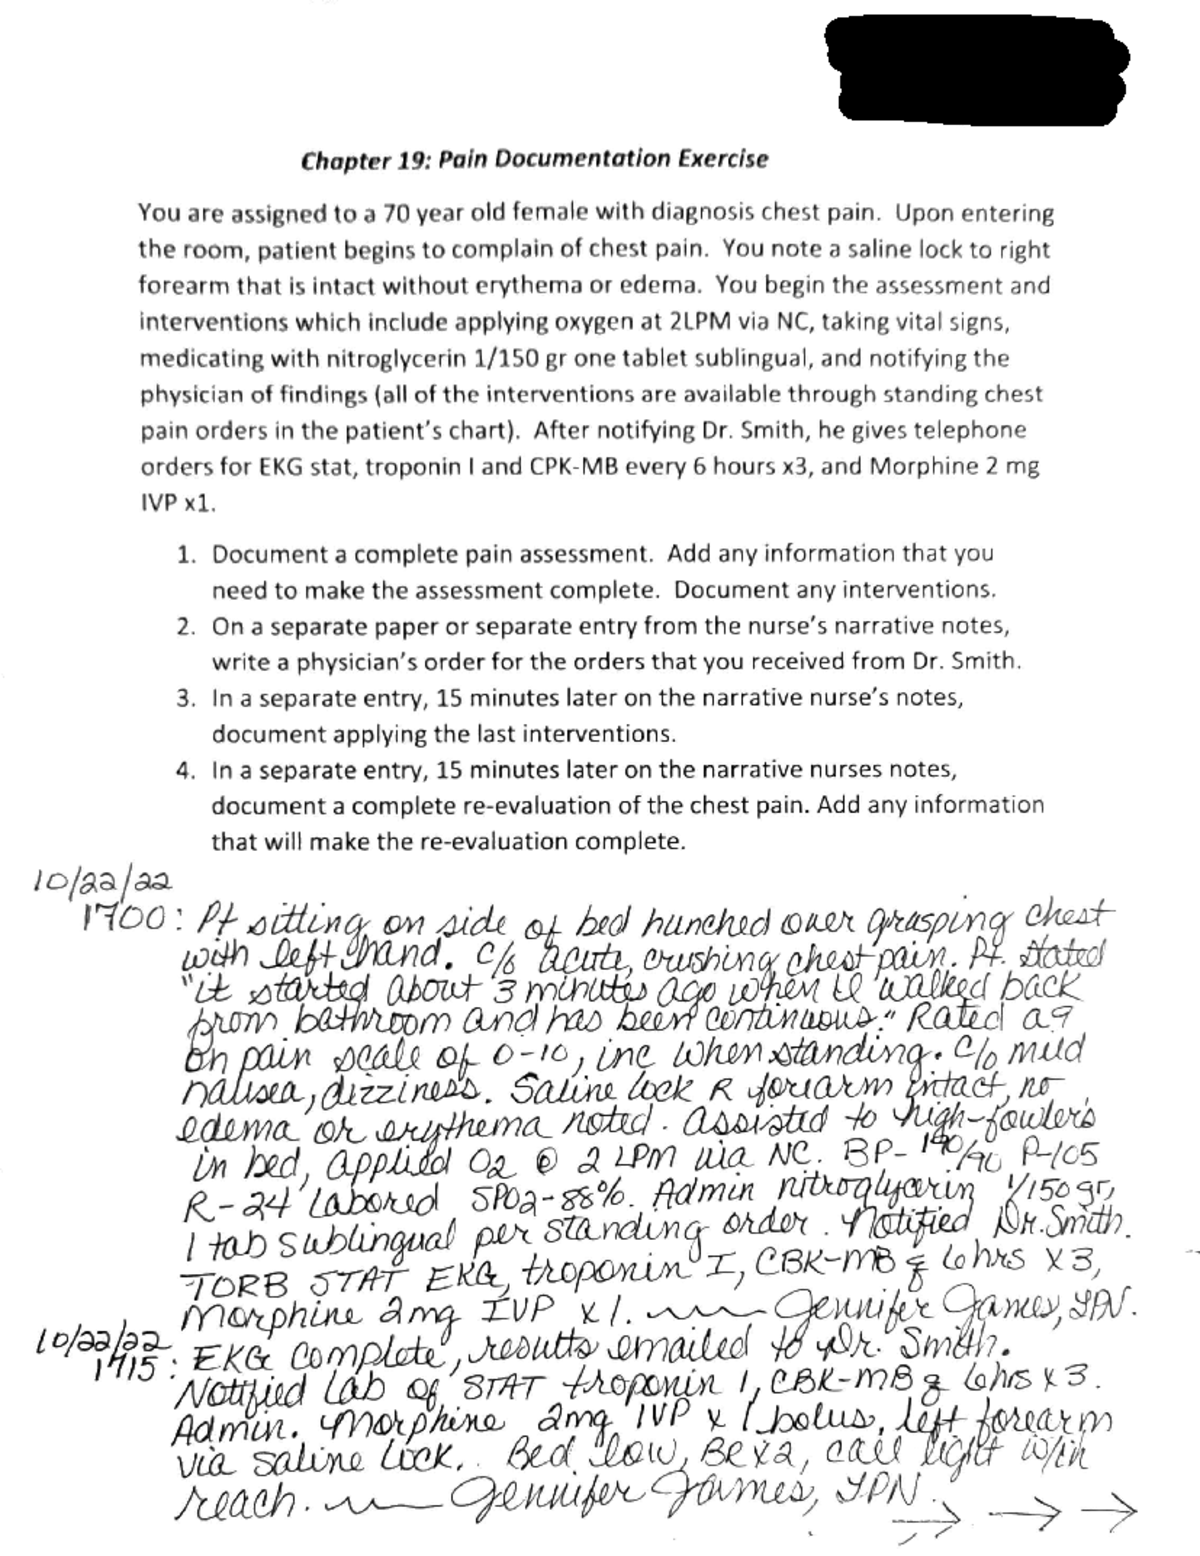 Chapter 19: Pain Documentation Exercise
You are assigned to a 70 year old female with diagnosis chest pain. Upon entering
the room, patient begins to complain of chest pain. You note a saline lock to right
forearm that is intact without erythema or edema. You begin the assessment and
interventions which include applying oxygen at 2LPM via NC, taking vital signs,
medicating with nitroglycerin 1/150 gr one tablet sublingual, and notifying the
physician of findings (all of the interventions are available through standing chest
pain orders in the patient's chart). After notifying Dr. Smith, he gives telephone
orders for EKG stat, troponin I and CPK-MB every 6 hours x3, and Morphine 2 mg
IVP x1.
1. Document a complete pain assessment. Add any information that you
need to make the assessment complete. Document any interventions.
2. On a separate paper or separate entry from the nurse's narrative notes,
write a physician's order for the orders that you received from Dr. Smith.
3. In a separate entry, 15 minutes later on the narrative nurse's notes,
document applying the last interventions.
4. In a separate entry, 15 minutes later on the narrative nurses notes,
document a complete re-evaluation of the chest pain. Add any information
that will make the re-evaluation complete.
10/22/22
1700: Pt sitting on side of bed hunched over grasping chest
with left hand. C/o acute, crushing chest pain. Pt. stated
"it started about 3 minutes ago when I walked back
from bathroom and has been continuous." Rated a 9
on pain scale of 0-10, inc when standing. C/o mild
nausea, dizziness. Saline lock R forearm intact, no
edema or erythema noted. Assisted to high-fowlers
in bed, applied O2 @ 2 LPM via NC. BP- 190/90 P-105
R-24 labored SPO2-88%. Admin nitroglycerin 1/150 gr,
1 tab sublingual per standing order. Notified Dr. Smith.
TORB STAT EKG, troponin I, CBK-MB q 6 hrs x 3,
Morphine 2mg IVP x 1. Jennifer James, LPN.
10/22/22
1715: EKG complete, results emailed to Dr. Smith.
Notified lab of STAT troponin I, CBK-MB q 6hrs x 3.
Admin. Morphine 2mg IVP x 1 bolus, left forearm
via saline lock. Bed low, BRx2, call light w/in
reach. Jennifer James, LPN.